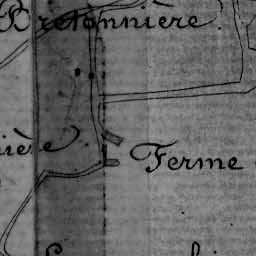 Bretonnière.
ière.
Ferme